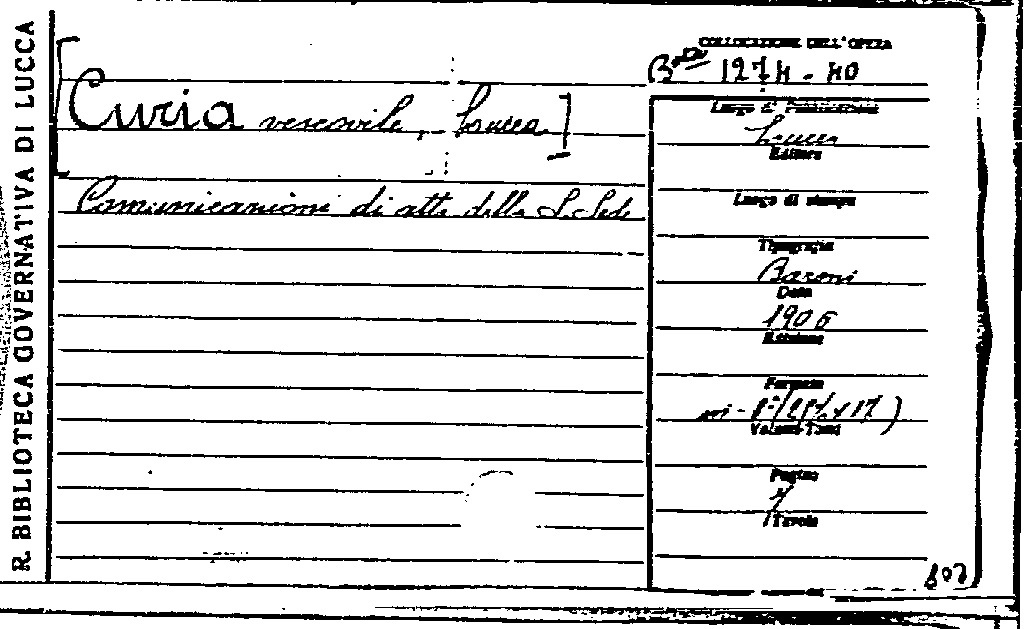 R. BIBLIOTECA GOVERNATIVA DI LUCCA
COLLOCAZIONE DELL'OPERA
B 1274-40
[Curia vescovile, Lucca]
Comunicazioni di atti della S. Sede
Luogo di Pubblicazione
Lucca
Editore
Luogo di stampa
Tipografia
Baroni
Data
1906
Edizione
Formato
in-8°
Volumi-Tomi
Pagine
Tavole